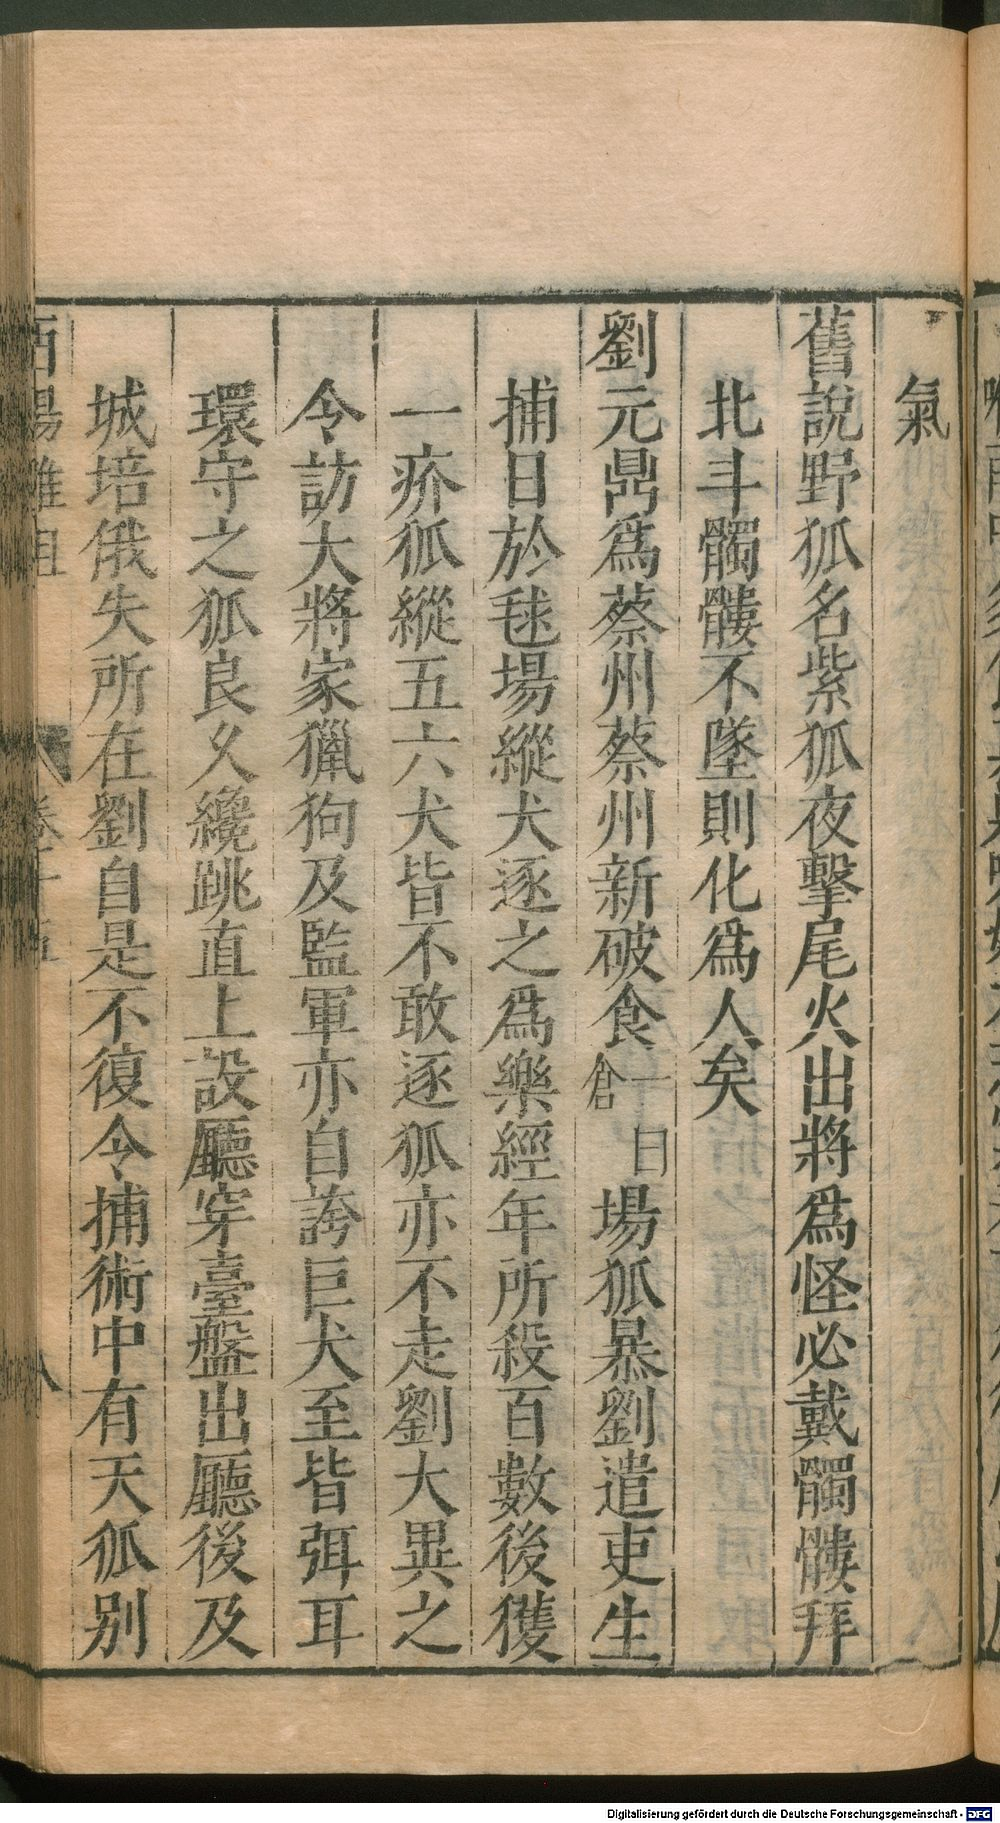 氣
舊說野狐名紫狐夜擊尾火出將爲怪必戴髑髏拜
北斗髑髏不墜則化爲人矣
劉元鼎爲蔡州蔡州新破食一曰倉場狐暴劉遣吏生
捕日於毬場縱犬逐之爲樂經年所殺百數後獲
一疥狐縱五六犬皆不敢逐狐亦不走劉大異之
令訪大將家獵狗及監軍亦自誇巨犬至皆弭耳
環守之狐良久纔跳直上設廳穿臺盤出廳後及
城培俄失所在劉自是不復令捕術中有天狐別
酉陽雜俎
卷十五
八
Digitalisierung gefördert durch die Deutsche Forschungsgemeinschaft - DFG